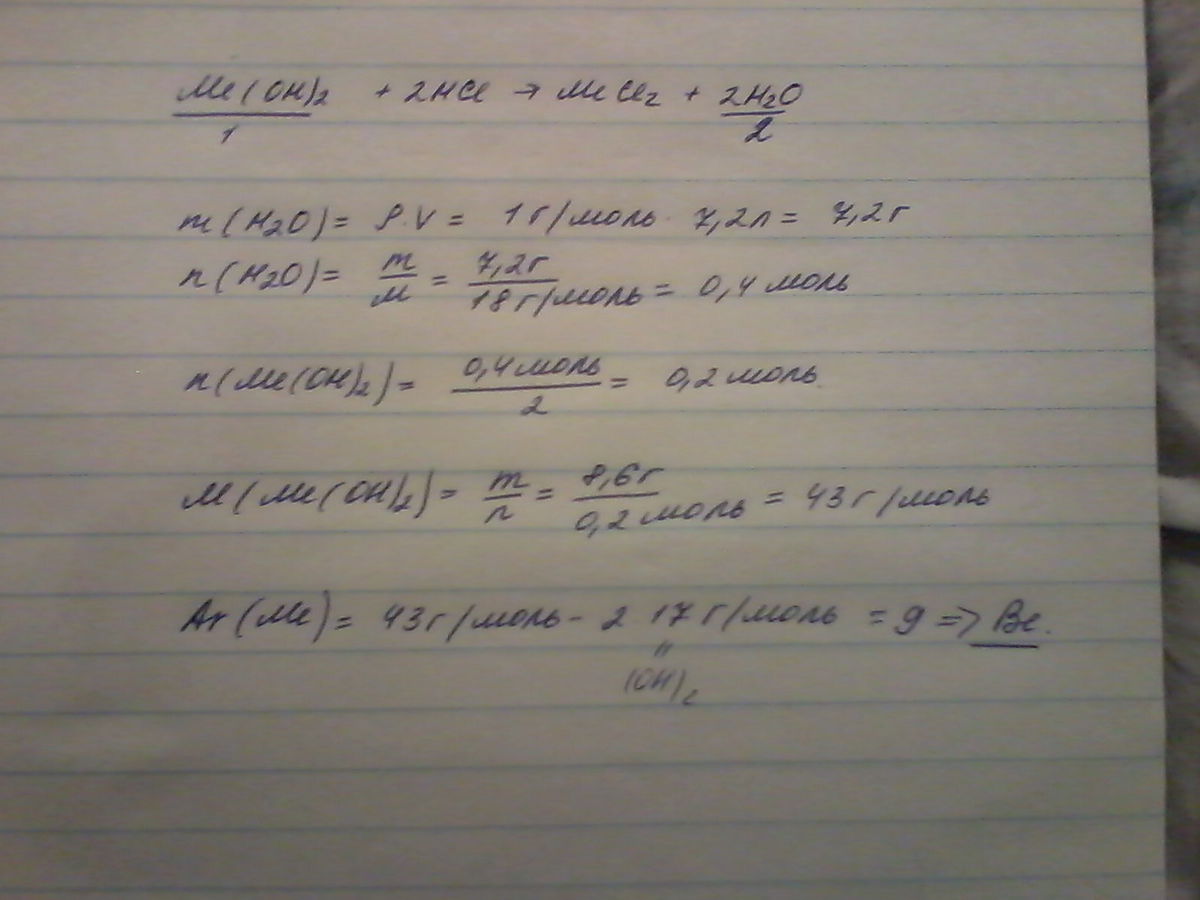 Me(OH)₂ + 2HCl → MeCl₂ + 2H₂O
1 2
m(H₂O) = ρ·V = 1г/моль · 7,2л = 7,2г
n(H₂O) = m/M = 7,2г/18г/моль = 0,4 моль
n(Me(OH)₂) = 0,4 моль/2 = 0,2 моль
M(Me(OH)₂) = m/n = 8,6г/0,2 моль = 43г/моль
Ar(Me) = 43г/моль - 2 17г/моль = 9 => Be.
"
(OH)₂